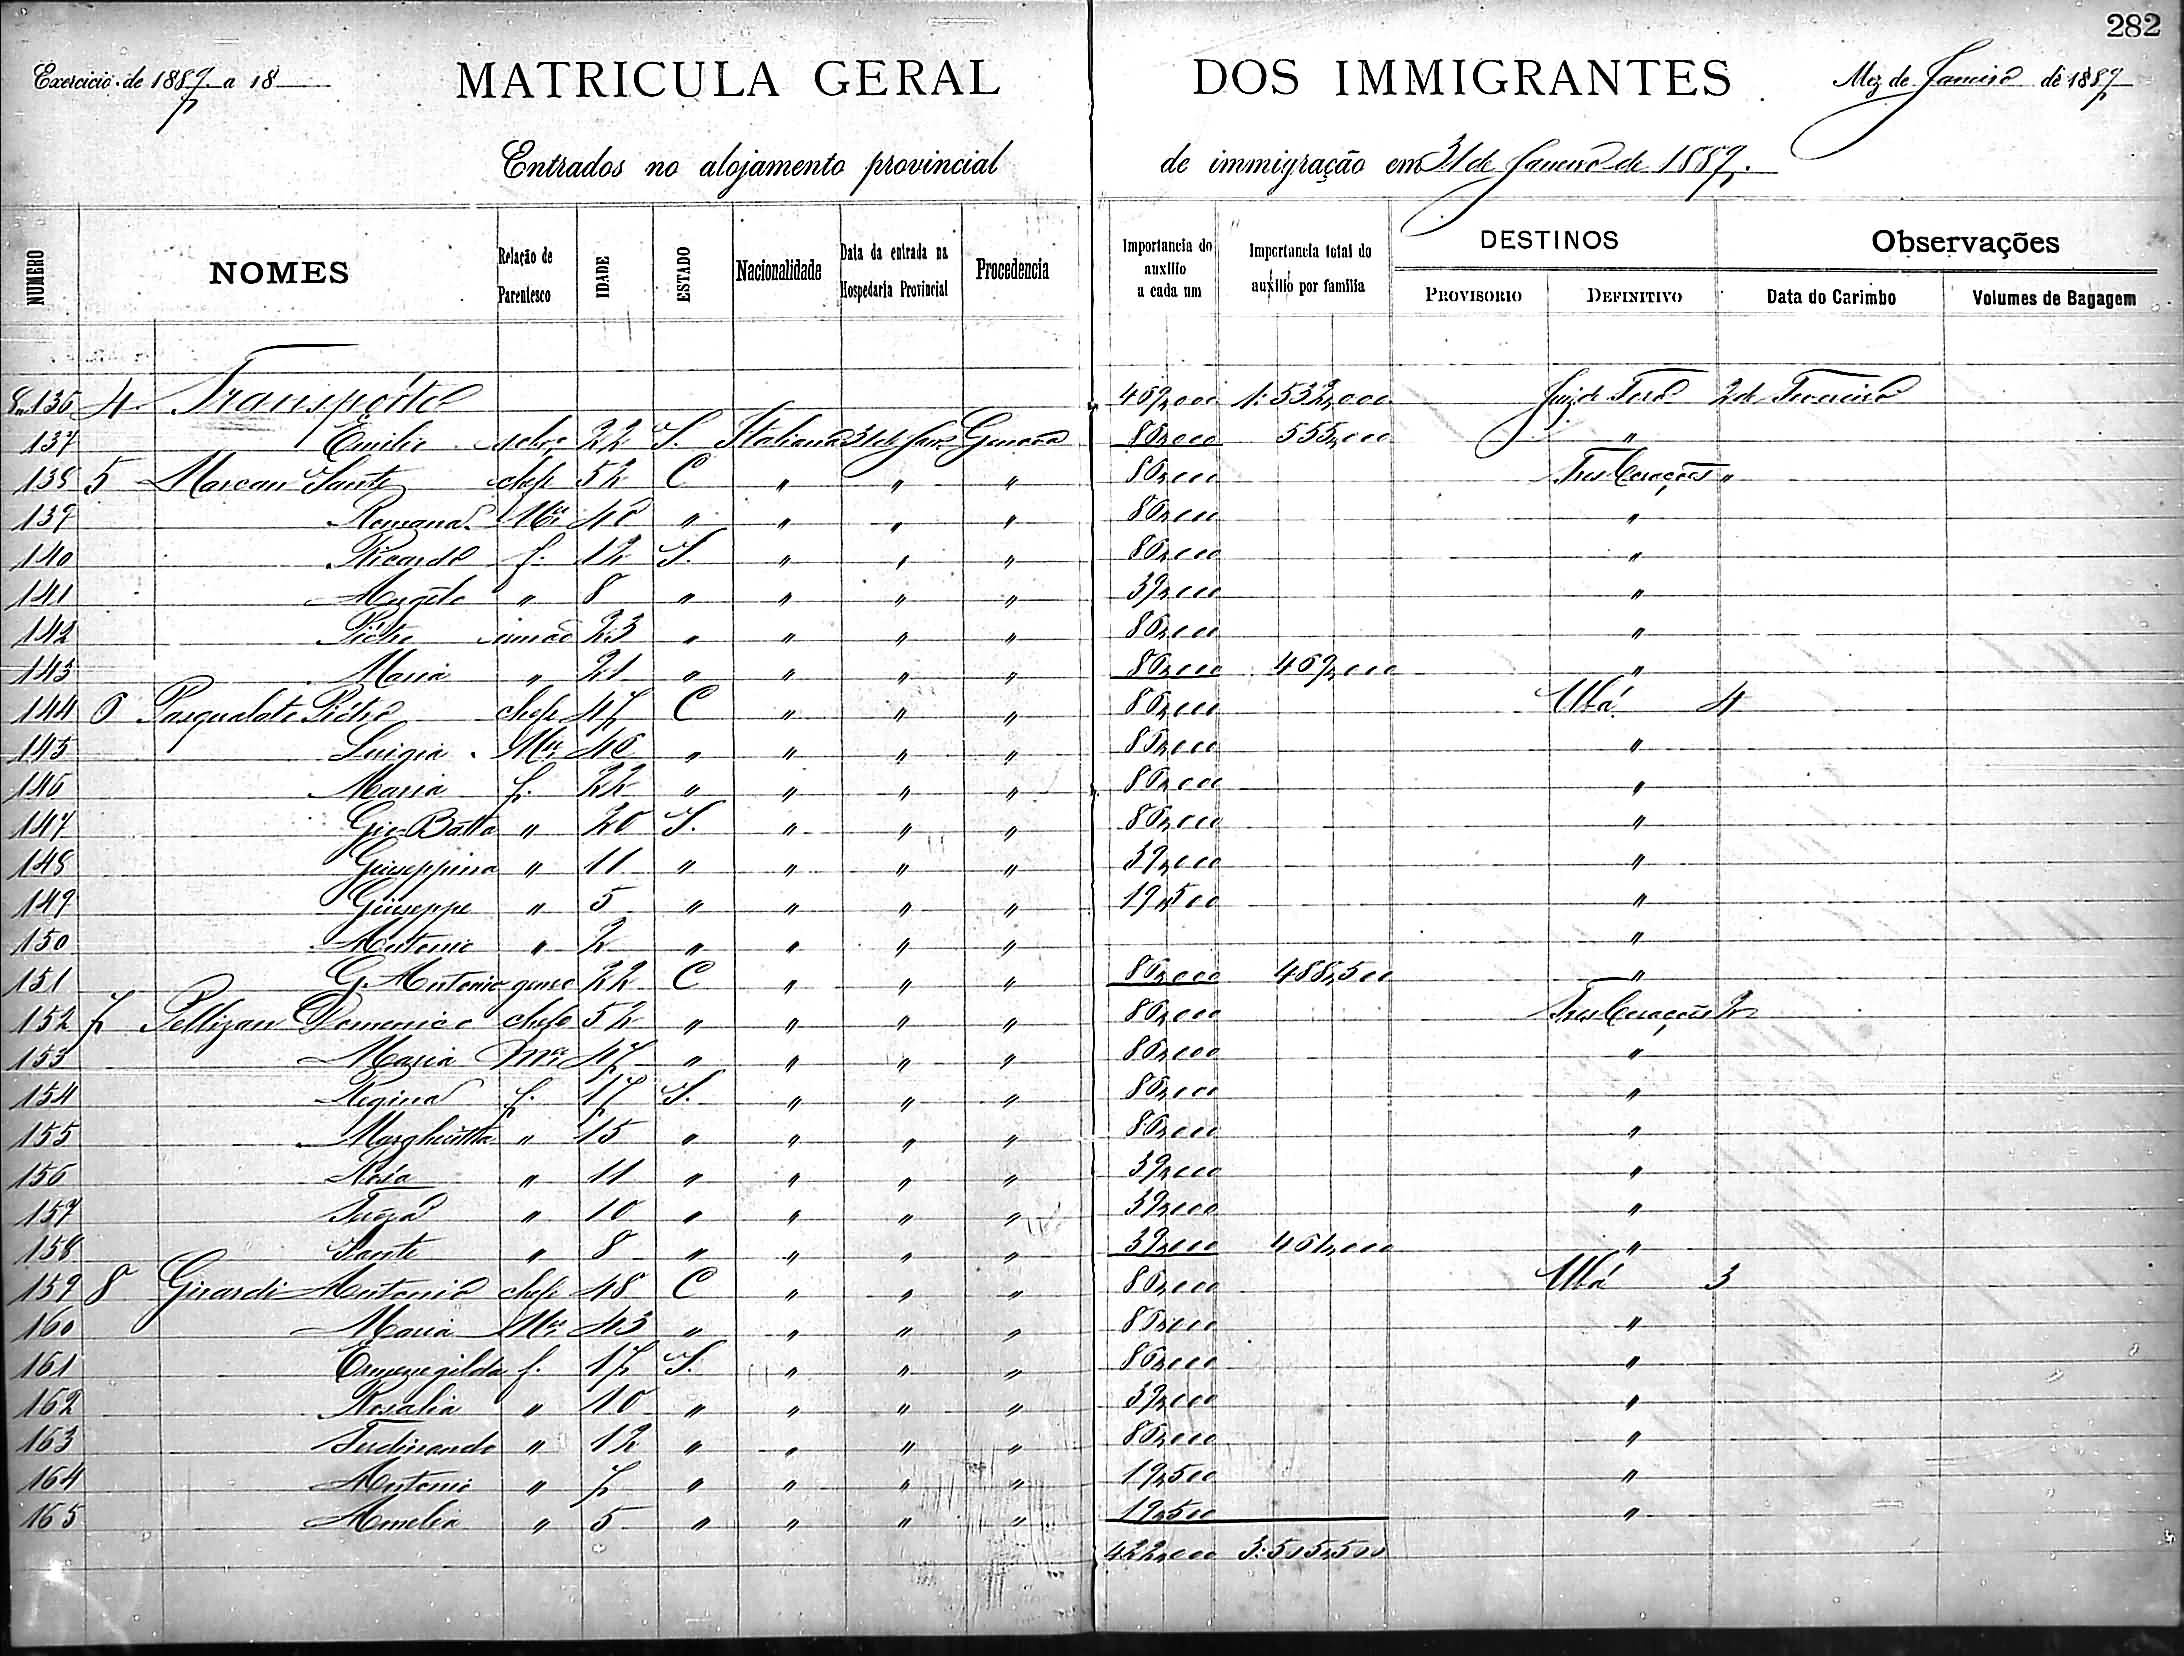 282
Exercicio de 1887 a 18 MATRICULA GERAL DOS IMMIGRANTES Mez de Janeiro de 1887
Entrados no alojamento provincial de immigração em 31 de Janeiro de 1887.
NUMERO NOMES Relação de Parentesco IDADE ESTADO Nacionalidade Data da entrada na Hospedaria Provincial Procedencia Importancia do auxilio a cada um Importancia total do auxilio por familia DESTINOS PROVISORIO DEFINITIVO Observações Data do Carimbo Volumes de Bagagem
136 4 Transporte 469,000 1:532,000 Juiz de Fora 2 de Fevereiro
137 Emilio sobro 22 S. Italiana 31 de Janro Genova 86,000 555,000 "
138 5 Marcan Sante chefe 52 C " " " 86,000 Tres Corações "
139 Romana Mer 46 " " " " 86,000 "
140 Ricardo f. 12 S. " " " 86,000 "
141 Angelo " 8 " " " " 39,000 "
142 Pietro irmão 23 " " " " 86,000 "
143 Maria " 21 " " " " 86,000 469,000 "
144 6 Pasqualoto Pietro chefe 47 C " " " 86,000 Ubá 4
145 Luigia Mer 46 " " " " 86,000 "
146 Maria f. 22 " " " " 86,000 "
147 Gio Batta " 20 S. " " " 86,000 "
148 Giuseppina " 11 " " " " 39,000 "
149 Giuseppe " 5 " " " " 19,500 "
150 Antonio " 2 " " " " "
151 G. Antonio genro 22 C " " " 86,000 488,500 "
152 7 Pellizan Domenico chefe 52 " " " " 86,000 Tres Corações 2
153 Maria Mer 47 " " " " 86,000 "
154 Regina f. 17 S. " " " 86,000 "
155 Margheritta " 15 " " " " 86,000 "
156 Rosa " 11 " " " " 39,000 "
157 " 10 " " " " 39,000 "
158 Sante " 8 " " " " 39,000 461,000 "
159 8 Girardi Antonio chefe 48 C " " " 86,000 Ubá 3
160 Maria Mer 43 " " " " 86,000 "
161 Ermenegilda f. 17 S. " " " 86,000 "
162 Rosalia " 10 " " " " 39,000 "
163 Ferdinando " 12 " " " " 86,000 "
164 Antonio " 7 " " " " 19,500 "
165 Amelia " 5 " " " " 19,500 "
422,000 3:505,500